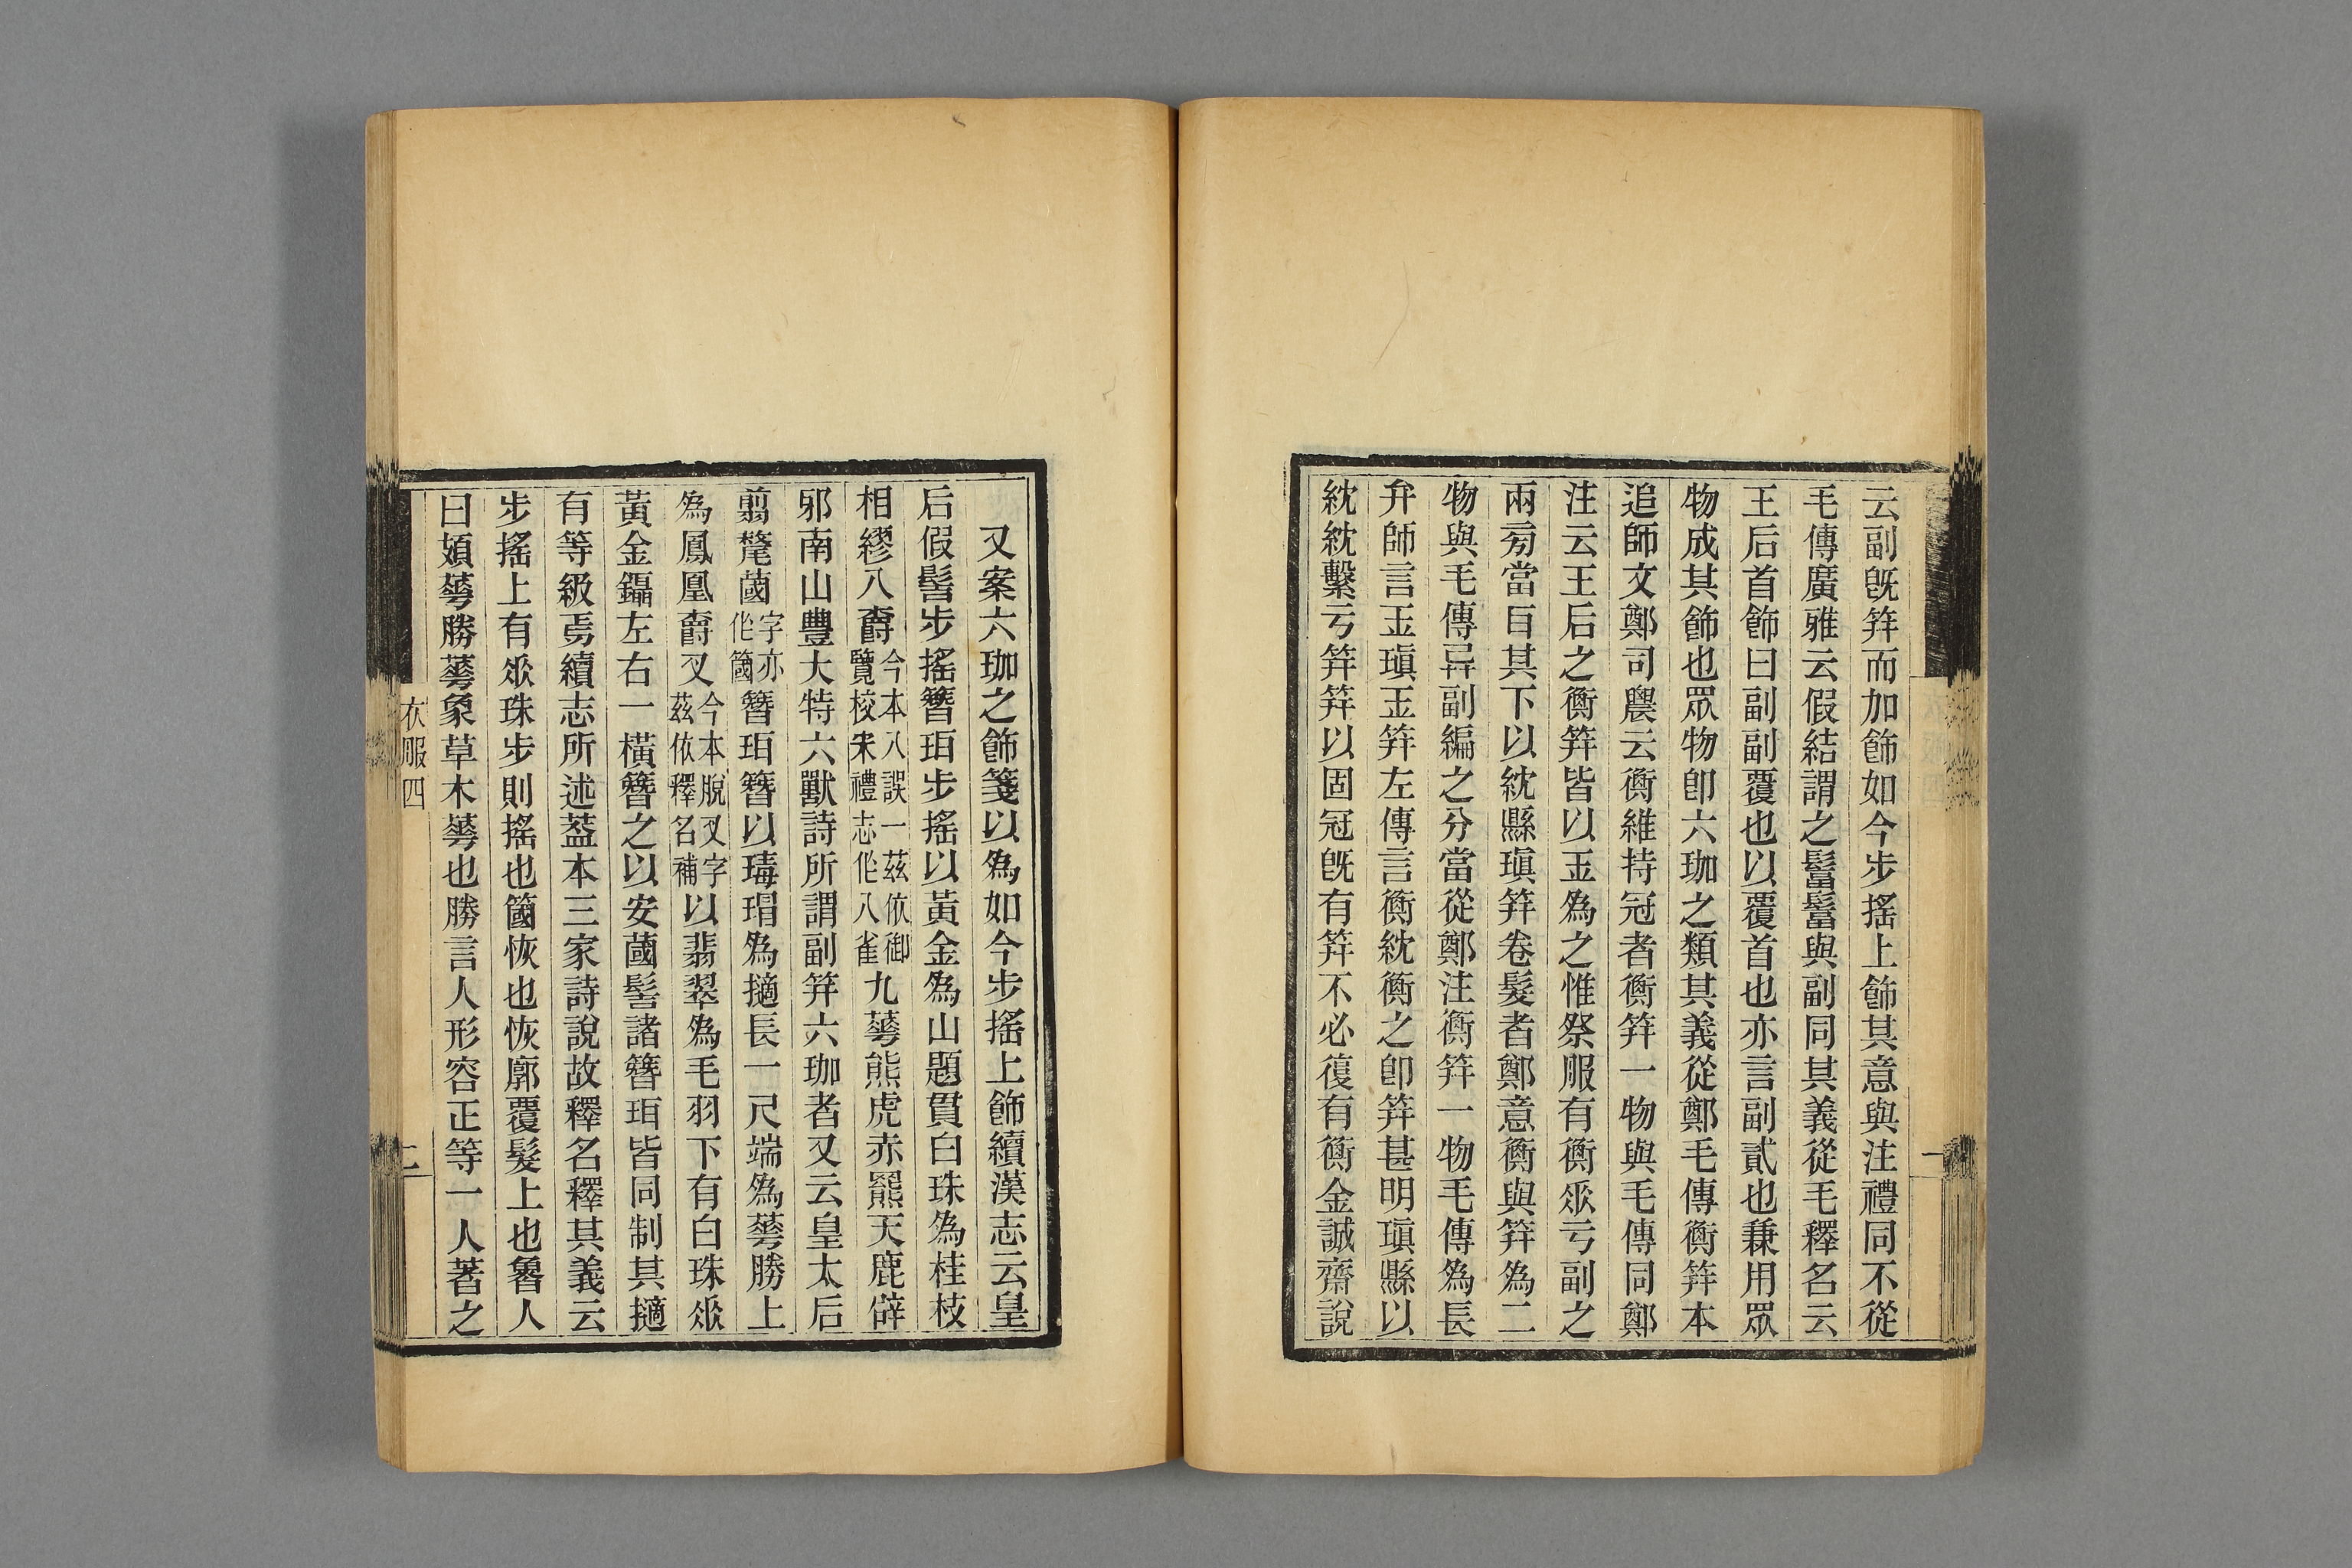 云副旣筓而加飾如今步搖上飾其意與注禮同不從
毛傳廣雅云假結謂之䰂䰂與副同其義從毛釋名云
王后首飾曰副副覆也以覆首也亦言副貳也兼用眾
物成其飾也眾物卽六珈之類其義從鄭毛傳衡筓本
追師文鄭司農云衡維持冠者衡筓一物與毛傳同鄭
注云王后之衡筓皆以玉爲之惟祭服有衡𠂹亏副之
兩㫄當耳其下以紞縣瑱筓卷髮者鄭意衡與筓爲二
物與毛傳异副編之分當從鄭注衡筓一物毛傳爲長
弁師言玉瑱玉筓左傳言衡紞衡之卽筓甚明瑱縣以
紞紞繫亏筓筓以固冠旣有筓不必復有衡金誠齋說
一
又案六珈之飾箋以爲如今步搖上飾續漢志云皇
后假髻步搖簪珥步搖以黃金爲山題貫白珠爲桂枝
相繆八爵今本八誤一茲依御覽校宋禮志作八雀九蕚熊虎赤羆天鹿辟
邪南山豐大特六獸詩所謂副筓六珈者又云皇太后
翦氂蔮字亦作簂簪珥簪以瑇瑁爲擿長一尺端爲蕚勝上
爲鳳凰爵又今本脫叉字茲依釋名補以翡翠爲毛羽下有白珠𠂹
黃金鑷左右一橫簪之以安蔮髻諸簪珥皆同制其擿
有等級焉續志所述葢本三家詩說故釋名釋其義云
步搖上有𠂹珠步則搖也簂恢也恢廓覆髮上也魯人
曰頍蕚勝蕚象草木蕚也勝言人形容正等一人著之
衣服四
二